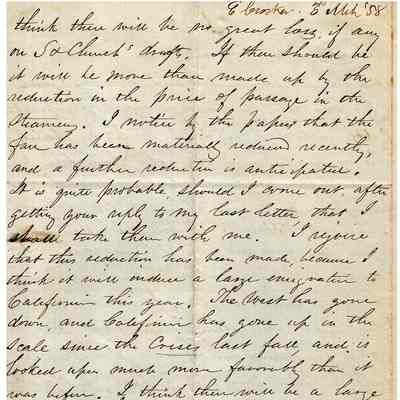 E Crocker. 5 Mch '58
think there will be no great loss, if any
on S & Church's draft. If there should be
it will be more than made up by the
reduction in the price of passage in the
Steamers. I notice by the papers that the
fare has been materially reduced recently,
and a further reduction is anticipated.
It is quite probable, should I come out, after
getting your reply to my last letter, that I
shall take them with me. I rejoice
that this reduction has been made, because I
think it will induce a large emigration to
California this year. The West has gone
down, and California has gone up in the
scale since the Crisis last fall and is
looked upon much more favorably than it
was before. I think there will be a large